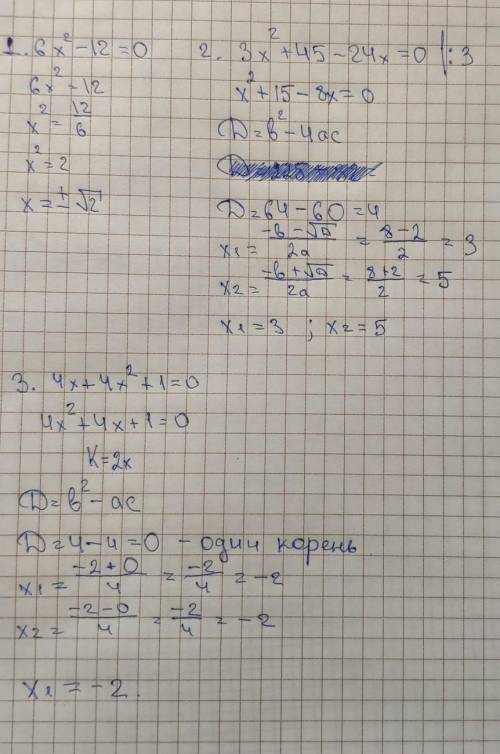 1. 6x² - 12 = 0
6x² = 12
x² = 12/6
x² = 2
x = ±√2
2. 3x² + 45 - 24x = 0 |:3
x² + 15 - 8x = 0
D = b² - 4ac
D = 64 - 60 = 4
x₁ = (-b - √D)/2a = (8 - 2)/2 = 3
x₂ = (-b + √D)/2a = (8 + 2)/2 = 5
x₁ = 3 ; x₂ = 5
3. 4x + 4x² + 1 = 0
4x² + 4x + 1 = 0
K = 2x
D = b² - ac
D = 4 - 4 = 0 - один корень
x₁ = (-2 + 0)/4 = -2/4 = -2
x₂ = (-2 - 0)/4 = -2/4 = -2
x₁ = -2.